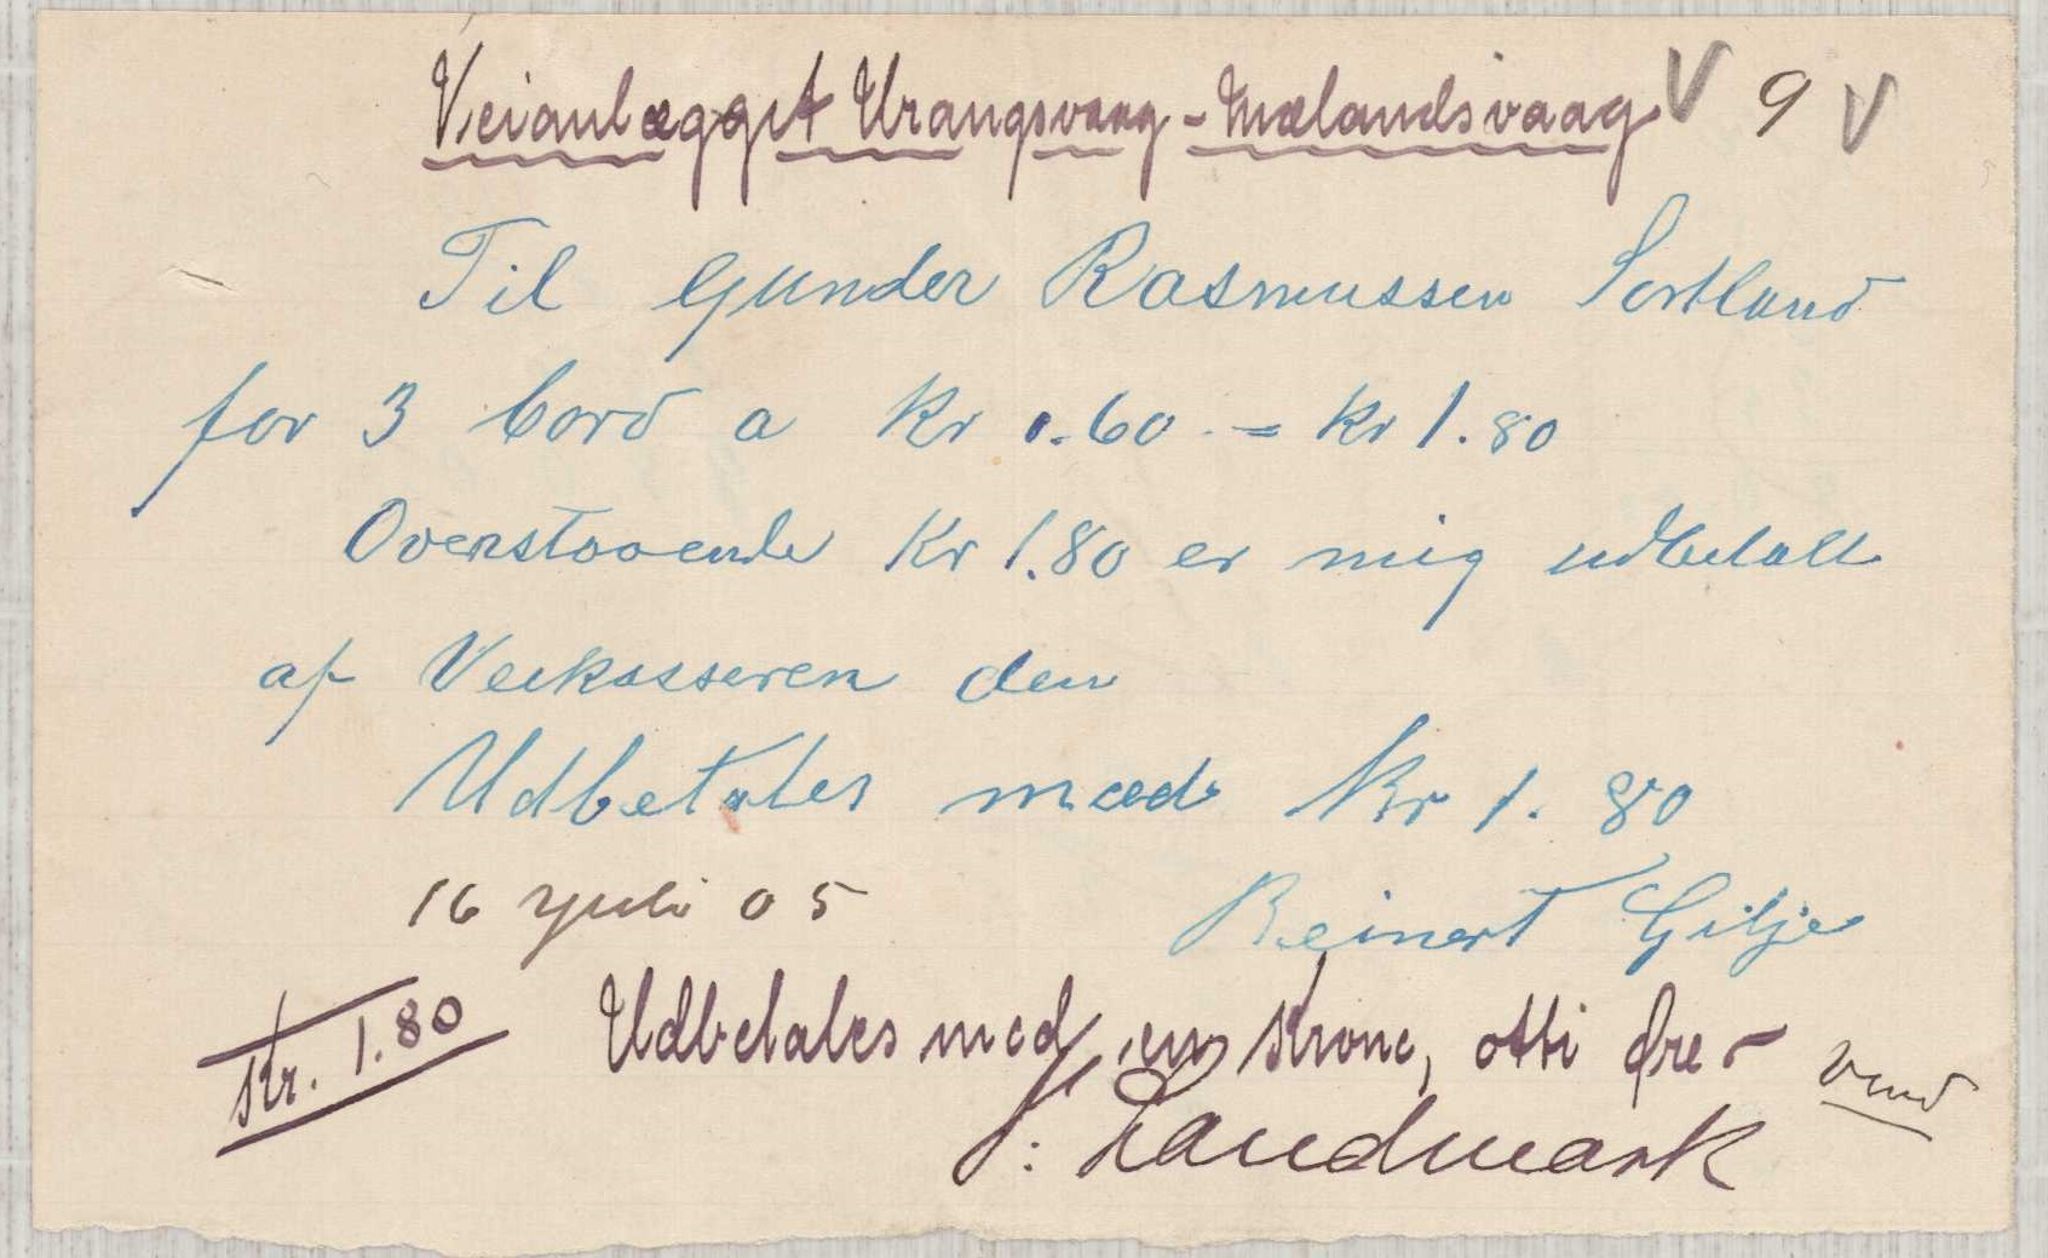 Veianlægget Urangsvaag-Mælandsvaag V 9 V
Til Gunder Rasmussen Sortland
for 3 bord a Kr 0.60 = Kr 1.80
Overstaaende Kr 1.80 er mig udbetalt
af Veikasseren den
Udbetales med Kr 1.80
16 Juli 05 Reinert Gilje
Kr. 1.80 Udbetales med en Krone, otti øre -
vend
J: Landmark